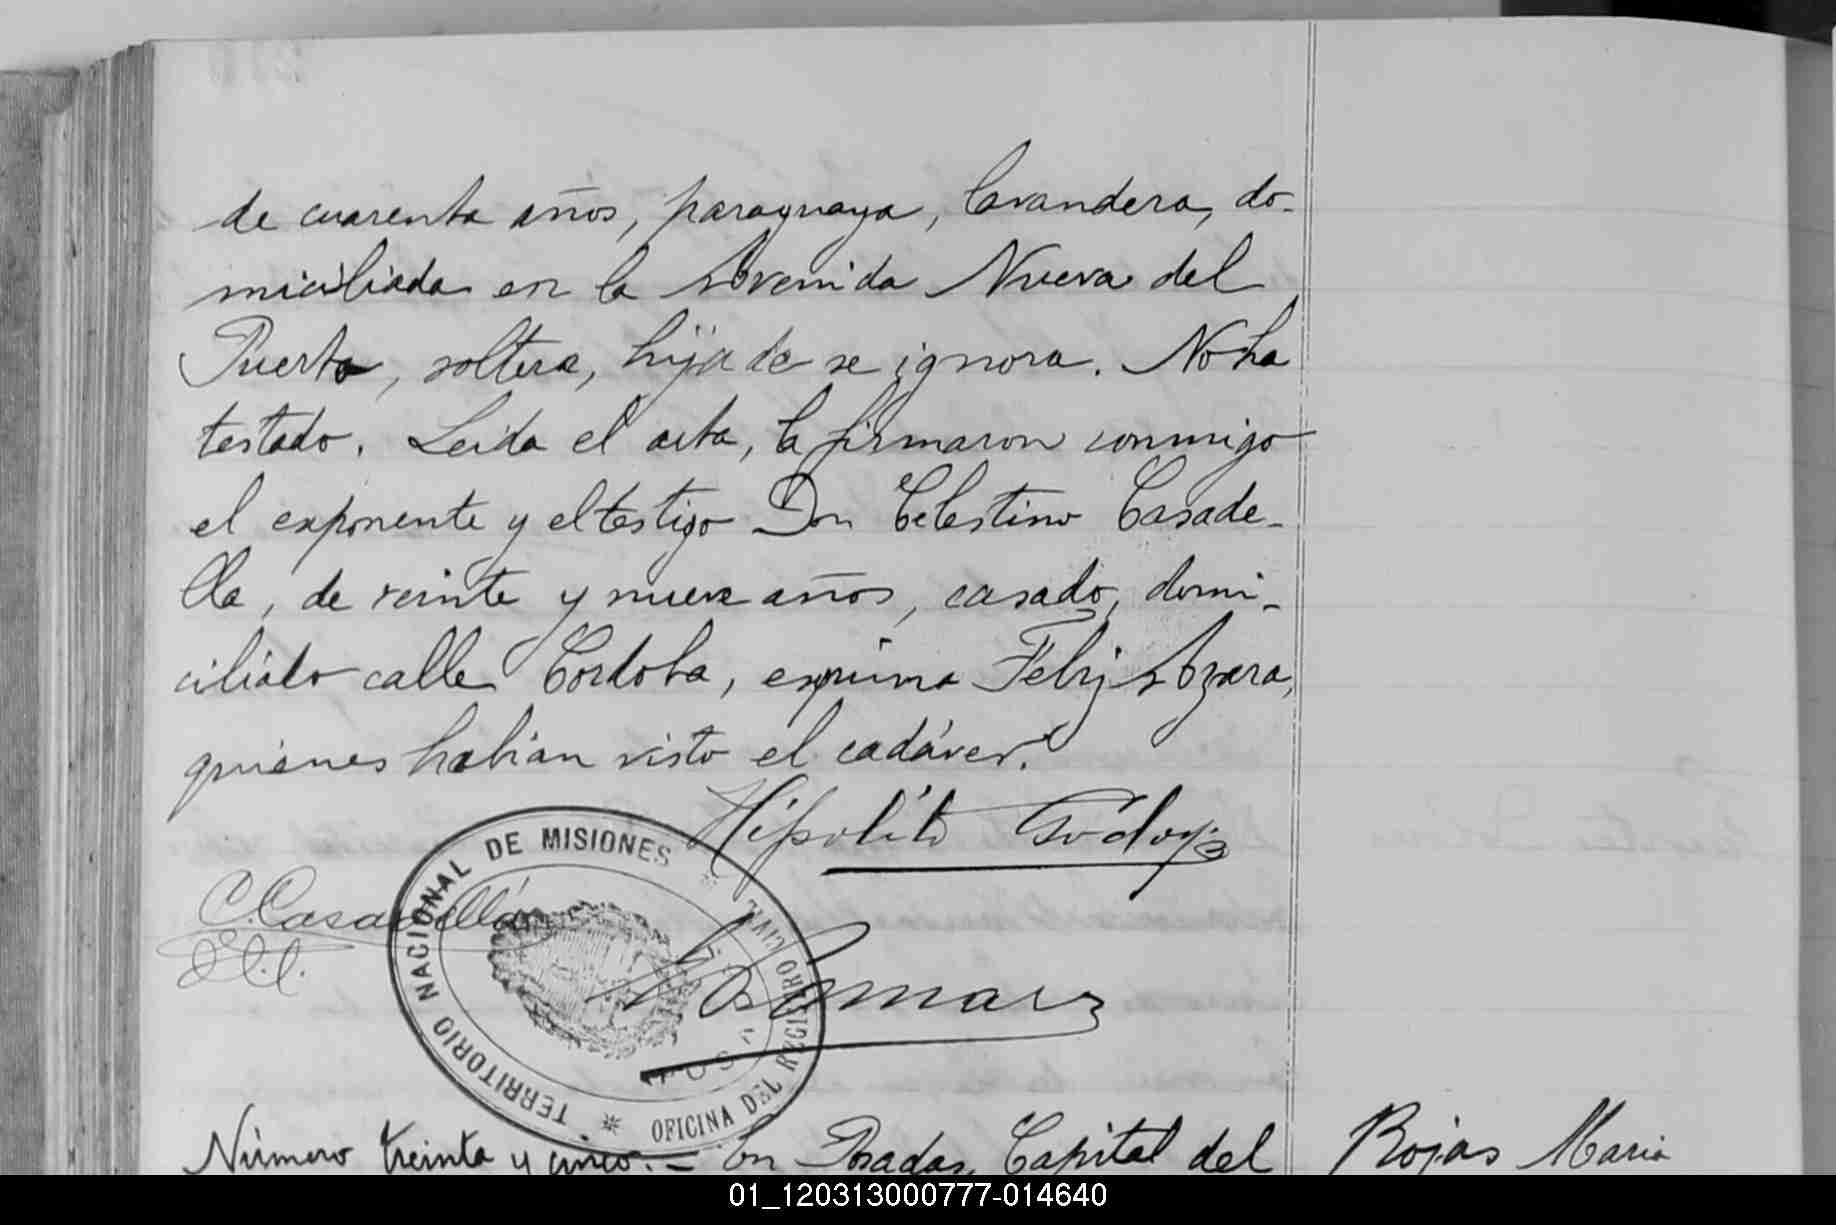 de cuarenta años, paraguaya, lavandera, do-
miciliada en la Avenida Nueva del
Puerto, soltera, hija de se ignora. No ha
testado. Leida el acta, la firmaron conmigo
el exponente y el testigo Don Celestino Casade-
lla, de veinte y nueve años, casado, domi-
ciliado calle Cordoba, esquina Feliz Azara,
quienes habian visto el cadáver.
Hipolito Godoy
TERRITORIO NACIONAL DE MISIONES * OFICINA DEL REGISTRO CIVIL *
C. Casadellá
Número treinta y cinco. - En Posadas, Capital del
Rojas Maria
01_120313000777-014640